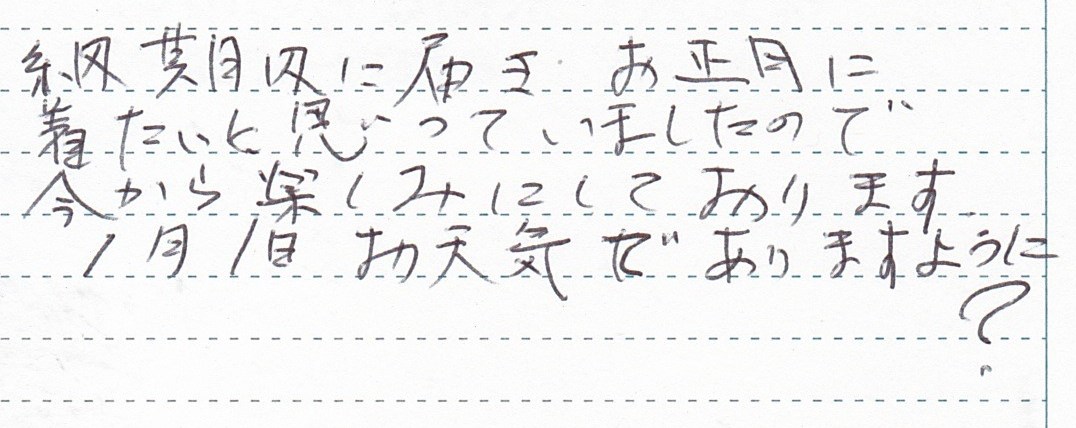 納期内に届き お正月に
着たいと思っていましたので
今から楽しみにしております
1月1日お天気でありますように
?